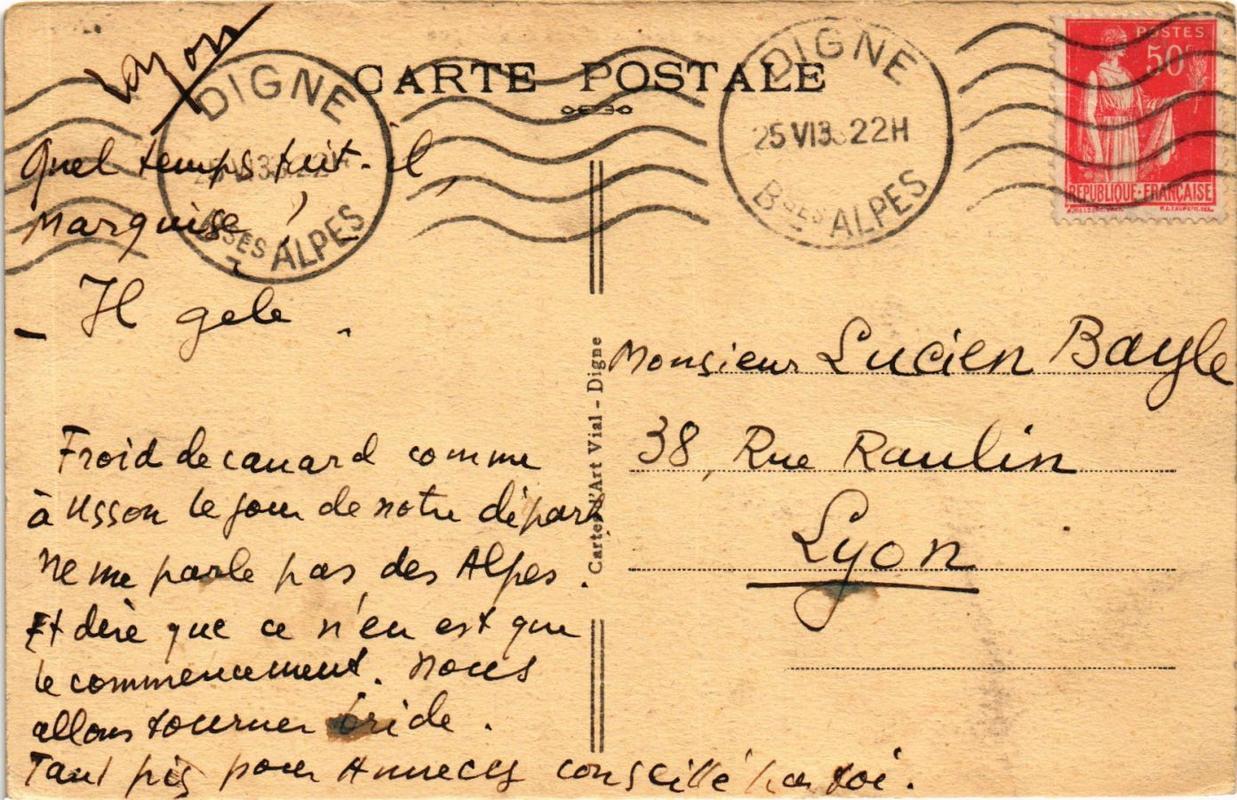 Lyon
CARTE POSTALE
DIGNE
BSES ALPES
DIGNE
25 VI 22H
BSES ALPES
POSTES
50c
REPUBLIQUE FRANÇAISE
Quel temps fait-il,
Marquise ?
- Il gèle.
Froid de canard comme
à Usson le jour de notre départ
Ne me parle pas des Alpes.
Et dire que ce n'en est que
le commencement. Nous
allons tourner bride.
Tant pis pour Annecy conseillé par toi.
Cartes d'Art Vial - Digne
Monsieur Lucien Bayle
38, Rue Raulin
Lyon